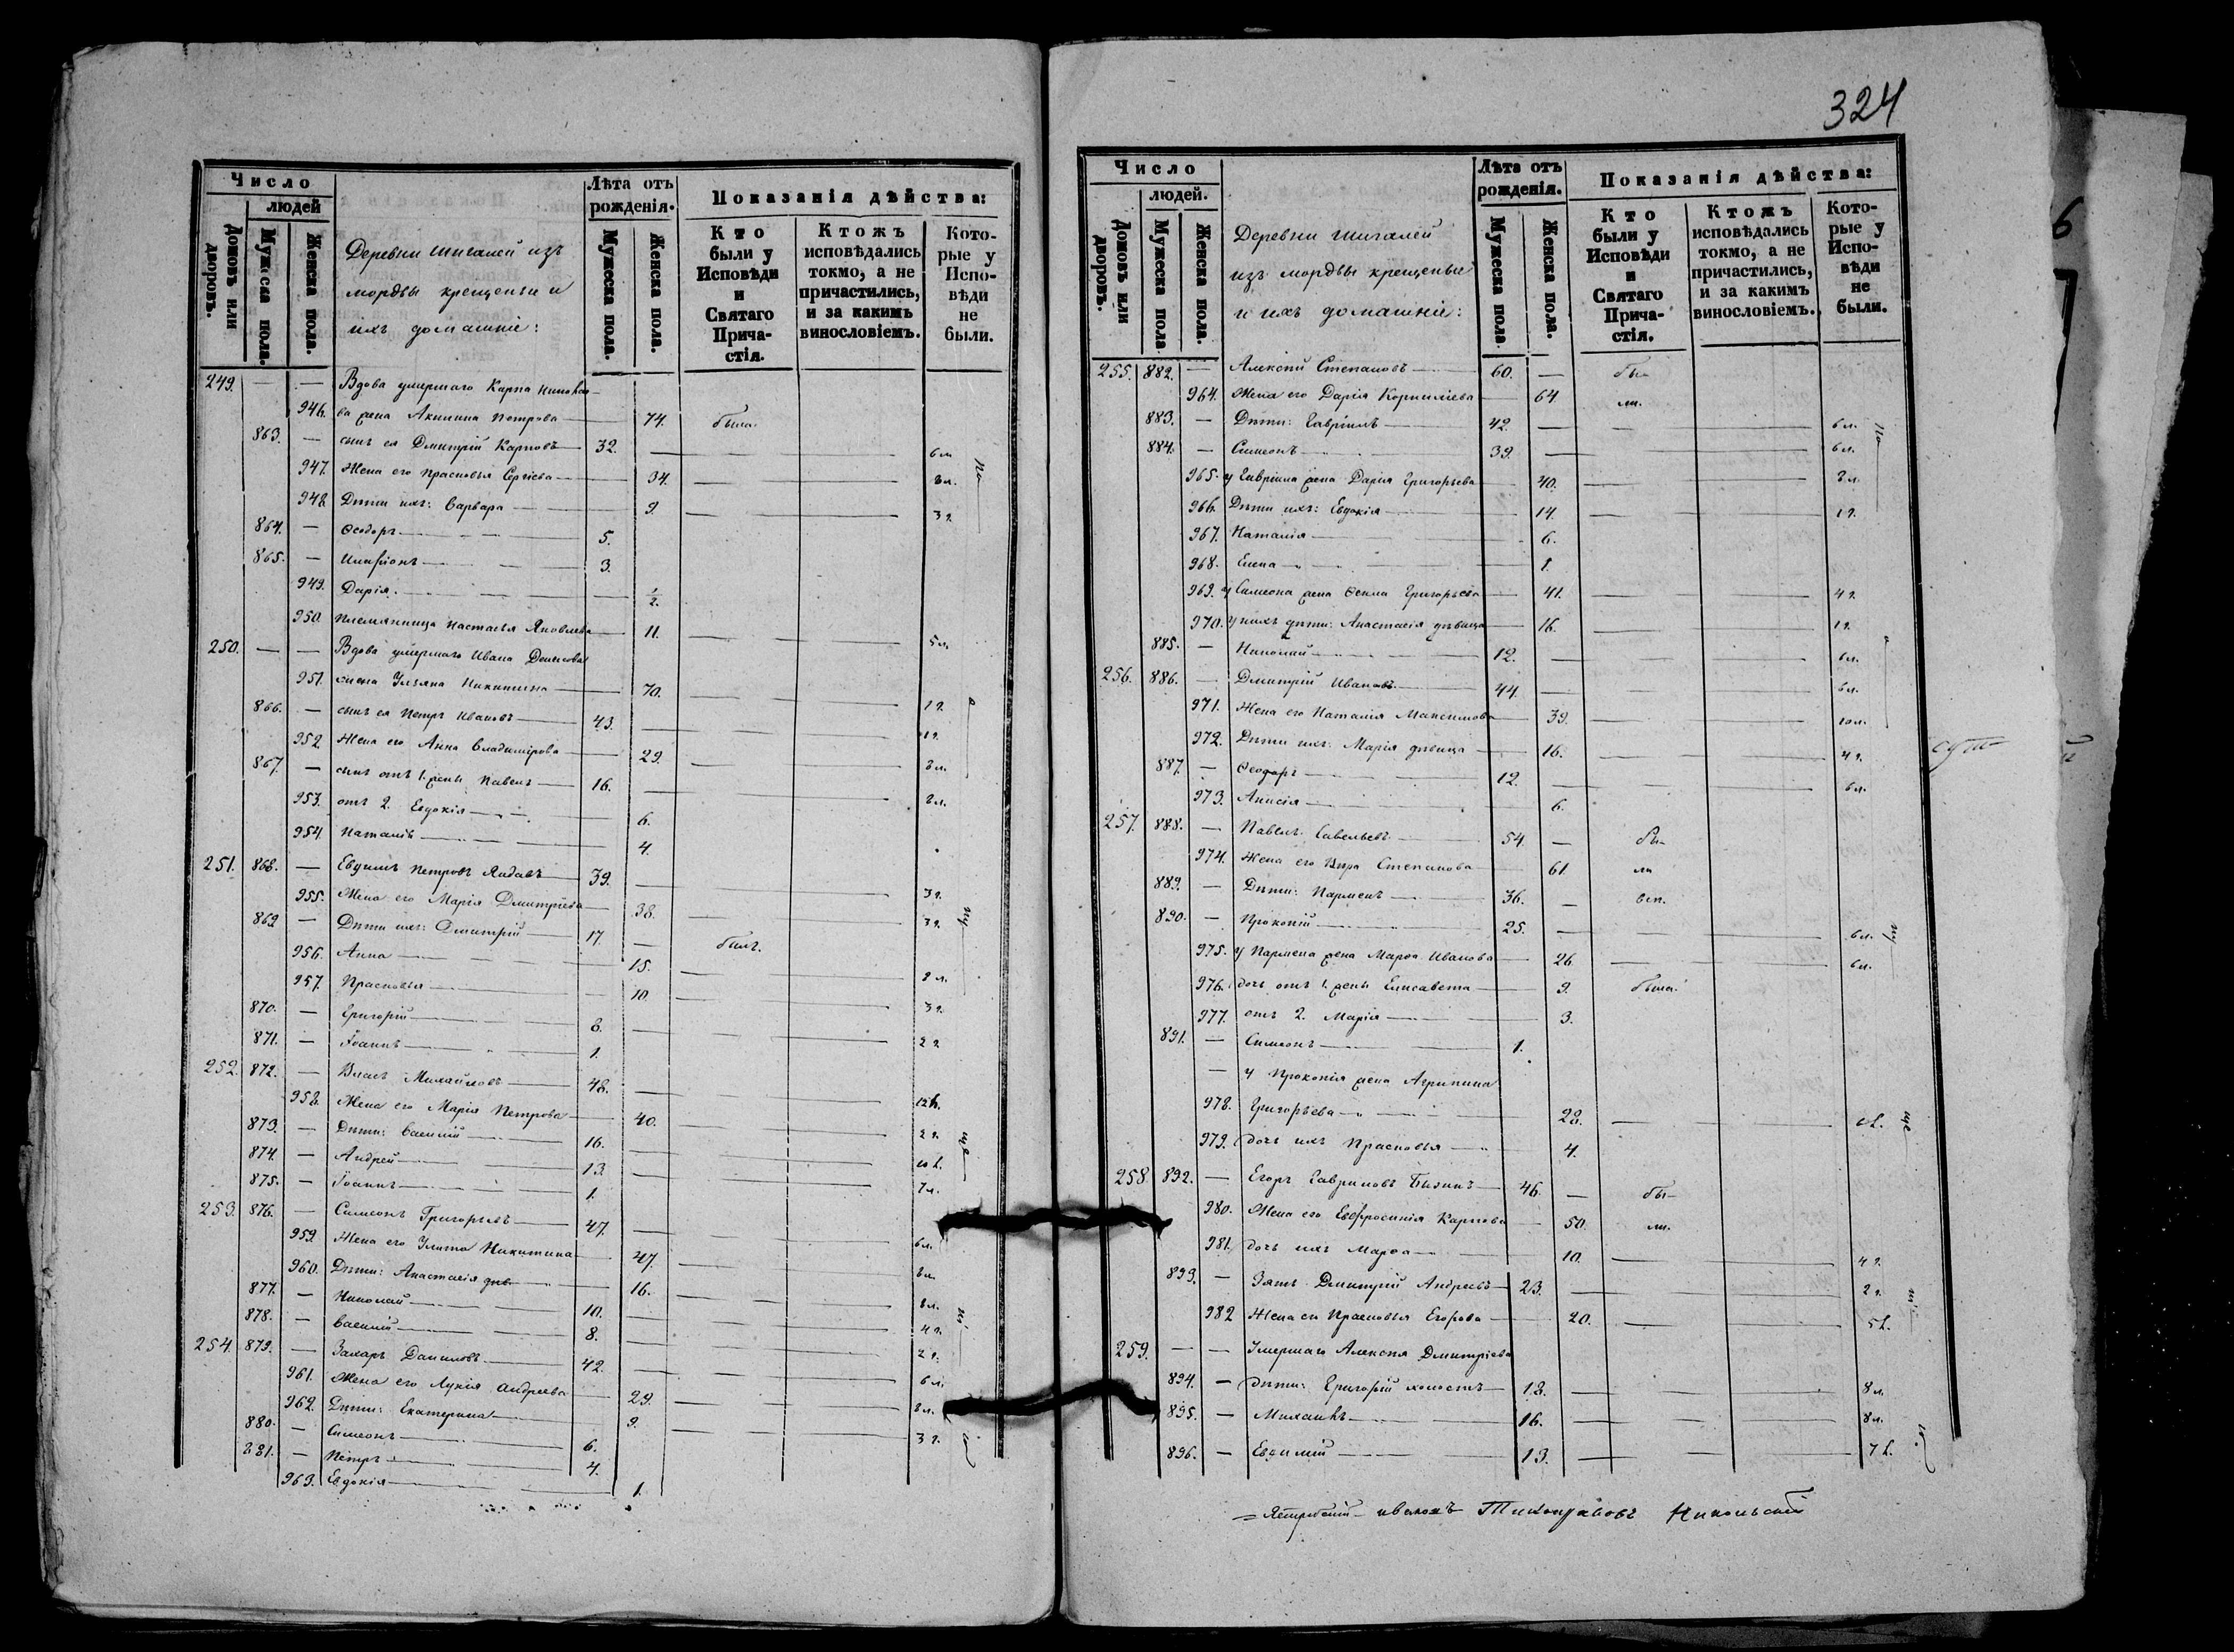 Число
людей
Домовъ или дворовъ.
Мужеска пола.
Женска пола.
Деревни Шигалей изъ
мордвы крещеные и
ихъ домашніе:
Лѣта отъ рожденія.
Мужеска пола.
Женска пола.
Показанія дѣйства:
Кто были у Исповѣди и Святаго Причастія.
Ктожъ исповѣдались токмо, а не причастились, и за какимъ винословіемъ.
Которые у Исповѣди не были.
249. — — Вдова умершаго Карпа
946. ва жена Акилина Петрова — 74. была.
863. — сынъ ея Дмитрій Карповъ — 32. — 6 л.
947. Жена его Прасковья Сергіева — 34. — 8 л.
948. Дѣти ихъ: Варвара — 9. — 3 г.
864. — Ѳеодоръ — 5.
865. — Иларіонъ — 3.
949. Дарія. — 1/2.
950. Племянница Настасья Яковлева — 11. — 5 л.
250. — — Вдова умершаго Ивана Денисова
951. жена Ульяна Никитина — 70. — 1 г.
866. — сынъ ея Петръ Ивановъ — 43. — 1 г.
952. Жена его Анна Владимірова — 29. — 8 л.
867. — сынъ отъ 1. жены Павелъ — 16. — 8 л.
953. отъ 2. Евдокія — 6.
954. Наталія — 4.
251. 868. — Евдимъ Петровъ — 39. — 3 г.
955. Жена его Марія Дмитріева — 38. — 3 г.
869. — Дѣти ихъ: Дмитрій — 17. — былъ.
956. Анна — 15. — 8 л.
957. Прасковья — 10. — 3 г.
870. — Григорій — 8. — 2 г.
871. — Іоаннъ — 1.
252. 872. — Власъ Михайловъ — 48. — 12 л.
958. Жена его Марія Петрова — 40. — 2 г.
873. — Дѣти: Василій — 16. — 10 л.
874. — Андрей — 13. — 7 л.
875. — Іоаннъ — 1.
253. 876. — Симеонъ Григорьевъ — 47. — 6 л.
959. Жена его Улита Никитина — 47. — 8 л.
960. Дѣти: Анастасія дѣв. — 16. — 8 л.
877. — Николай — 10. — 4 г.
878. — Василій — 8. — 2 г.
254. 879. — Захаръ Даниловъ — 42. — 6 л.
961. Жена его Лукія Андреева — 29. — 8 л.
962. Дѣти: Екатерина — 9. — 3 г.
880. — Симеонъ — 6.
881. — Петръ — 4.
963. Евдокія — 1.
324
Число
людей.
Домовъ или дворовъ.
Мужеска пола.
Женска пола.
Деревни Шигалей
изъ мордвы крещеные
и ихъ домашніе:
Лѣта отъ рожденія.
Мужеска пола.
Женска пола.
Показанія дѣйства:
Кто были у Исповѣди и Святаго Причастія.
Ктожъ исповѣдались токмо, а не причастились, и за какимъ винословіемъ.
Которые у Исповѣди не были.
255. 882. — Алексѣй Степановъ — 60. — бы-
964. Жена его Дарія Корниліева — 64. ли.
883. — Дѣти: Гавріилъ — 42. — 6 л.
884. — Симеонъ — 39. — 6 л.
965. у Гавріила жена Дарія Григорьева — 40. — 8 л.
966. Дѣти ихъ: Евдокія — 14. — 1 г.
967. Наталія — 6.
968. Елена — 1.
969. у Симеона жена Ѳекла Григорьева — 41. — 4 г.
970. у нихъ дѣти: Анастасія дѣвица — 16. — 1 г.
885. — Николай — 12. — 6 л.
256. 886. — Дмитрій Ивановъ — 44. — 6 л.
971. Жена его Наталія Максимова — 39. — 10 л.
972. Дѣти ихъ: Марія дѣвица — 16. — 4 г.
887. — Ѳеодоръ — 12. — 6 л.
973. Анисія — 6.
257. 888. — Павелъ Савельевъ — 54. — бы-
974. Жена его Вѣра Степанова — 61. ли
889. — Дѣти: Парменъ — 36. —
890. — Прокопій — 25. — 6 л.
975. у Пармена жена Марѳа Иванова — 26. — 6 л.
976. дочь отъ 1. жены Елисавета — 9. была.
977. отъ 2. Марія — 3.
891. — Симеонъ — 1.
— у Прокопія жена Агрипина
978. Григорьева — 28. —
979. дочь ихъ Прасковья — 4.
258. 892. — Егоръ Гавриловъ — 46. — бы-
980. Жена его Евфросинія Карпова — 50. ли.
981. дочь ихъ Марѳа — 10. — 4 г.
893. — Зять Дмитрій Андреевъ — 23. — 2 г.
982 Жена его Прасковья Егорова — 20. — 5 л.
259. — — Умершаго Алексѣя Дмитріева
894. — дѣти: Григорій холостъ — 18. — 8 л.
895. — Михаилъ — 16. — 8 л.
896. — Евфимій — 13. — 7 л.
Тихонравовъ Никольскій